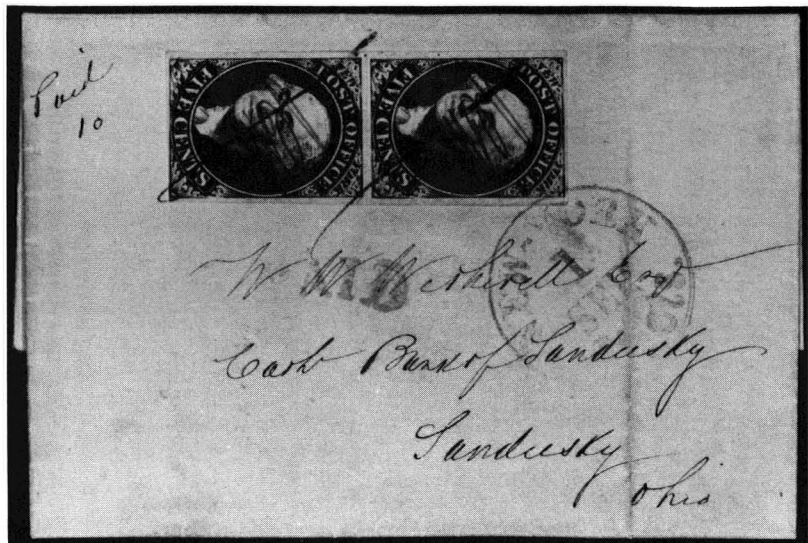 Paid
10
POST OFFICE
FIVE CENTS
POST OFFICE
FIVE CENTS
NEW-YORK
SEP
PAID
W W Wetherell Esq
Cash Bank of Sandusky
Sandusky
Ohio